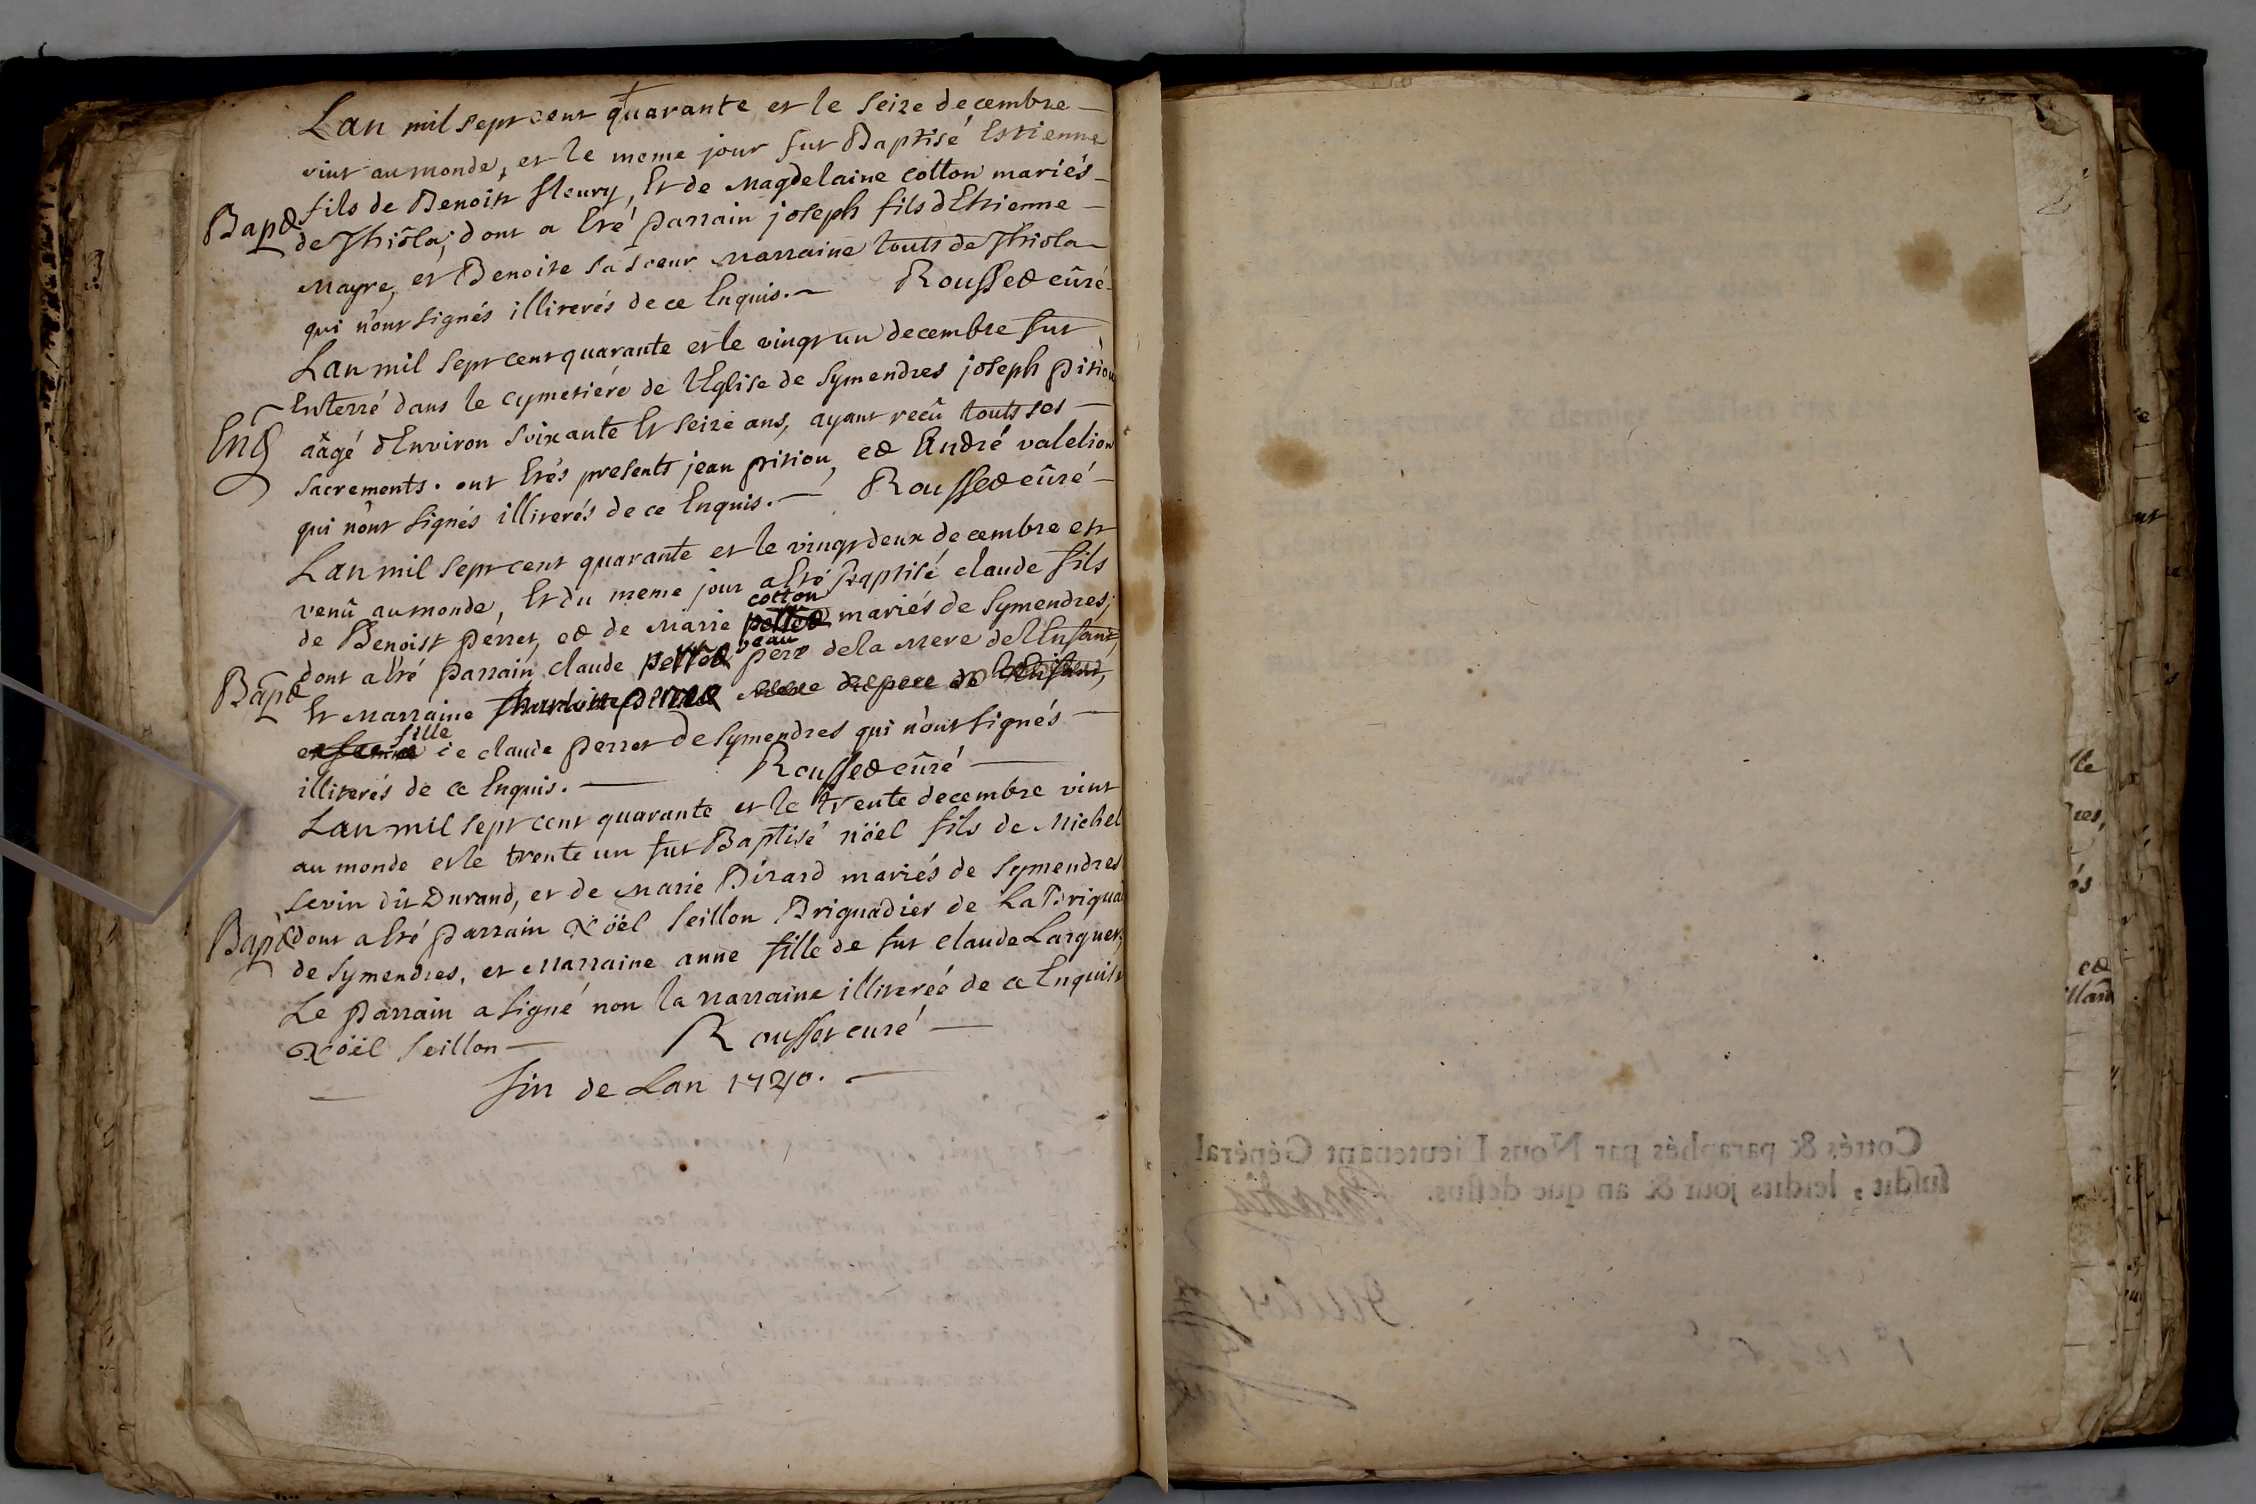 Lan mil sept cent quarante et le seize decembre
vint au monde, et le meme jour fut Baptisé Estienne
fils de Benoist fleury, Et de Magdelaine cotton mariés
Bapt de Thiola; dont a Eté parrain joseph fils dEtienne
Mayre, et Benoite sa soeur Marraine touts de Thiola
qui n'ont signés illiterés de ce Enquis. Rousset cûré
Lan mil sept cent quarante et le vingt un decembre fut
Enterré dans le cymetiére de lEglise de Symendres joseph pition
Ent aâgé dEnviron soixante Et seize ans, ayant recû touts ses
sacrements. ont Etés presents jean pition, et André valelion
qui nônt signés illiterés de ce Enquis. Rousset cûré
Lan mil sept cent quarante et le vingt deux decembre est
venû au monde, Et du meme jour a Eté Baptisé claude fils
cotton
de Benoist perret, et de Marie mariés de Symendres;
beau
dont a Eté parrain claude pere de la Mere de lEnfant,
Bapt Et Marraine Mere de lEnfant,
fille
et femme de claude perret de Symendres qui n'ont signés
illiterés de ce Enquis. Rousset cûré
Lan mil sept cent quarante et le trente decembre vint
au monde et le trente un fut Baptisé nöel fils de Michel
sevin dit Durand, et de Marie Birard mariés de Symendres
Bapt dont a Eté parrain Nöel Seillon Briguadier de La Briguade
de Symendres, et Marraine anne fille de fut claude Larguet;
Le parrain a signé non la Marraine illiterée de ce Enquise
Nöel Seillon Rousset curé
fin de Lan 1740.
Cottés & paraphés par Nous Lieutenant Général
susdit, lesdits jour & an que dessus.